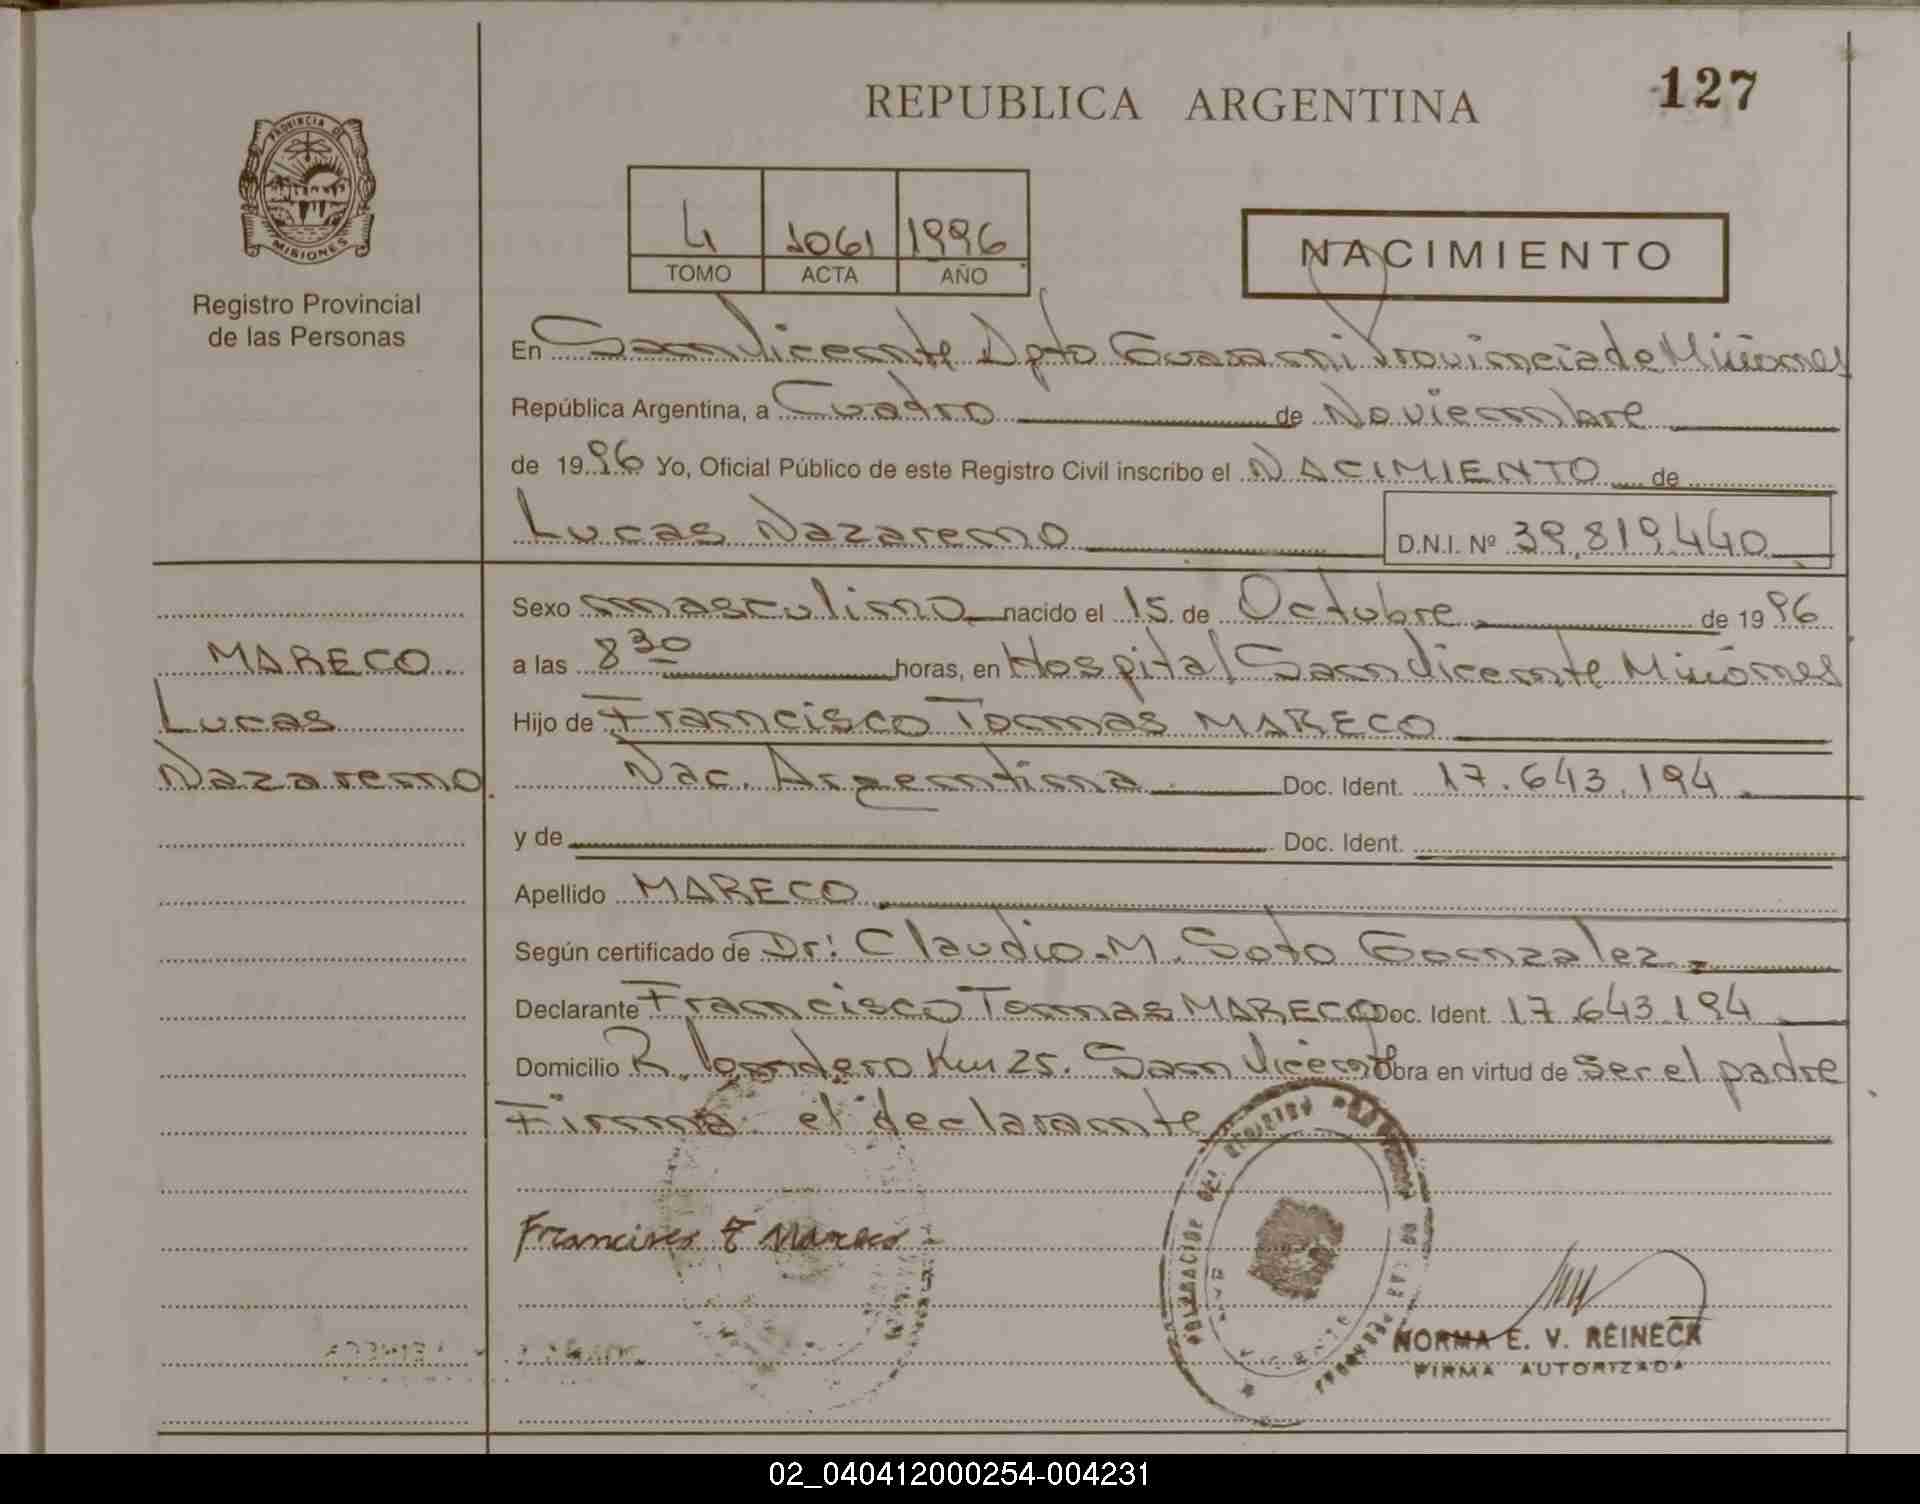 127
REPUBLICA ARGENTINA
PROVINCIA DE
MISIONES
Registro Provincial
de las Personas
4 1061 1996
TOMO ACTA AÑO
NACIMIENTO
En San Vicente Dpto Guarani Provincia de Misiones
República Argentina, a Cuatro de Noviembre
de 1996 Yo, Oficial Público de este Registro Civil inscribo el NACIMIENTO de
Lucas Nazareno D.N.I. Nº 39.819.440
MARECO
Lucas
Nazareno
Sexo masculino nacido el 15 de Octubre de 1996
a las 8 30 horas, en Hospital San Vicente Misiones
Hijo de Francisco Tomas MARECO
Nac. Argentina Doc. Ident. 17.643.194
y de Doc. Ident.
Apellido MARECO
Según certificado de Dr: Claudio.M. Soto Gonzalez
Declarante Francisco Tomas MARECO Doc. Ident. 17.643.194
Domicilio Km 25. San Vicente Obra en virtud de ser el padre
Firma el declarante
Francisco T Mareco
NORMA E. V. REINECK
FIRMA AUTORIZADA
02_040412000254-004231